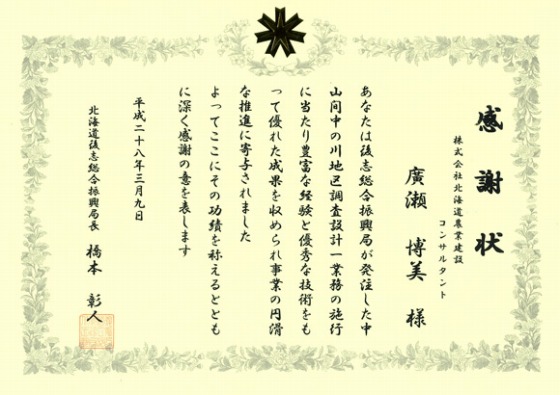 感謝状
株式会社北海道農業建設
コンサルタント
廣瀬 博美 様
あなたは後志総合振興局が発注した中
山間中の川地区調査設計一業務の施行
に当たり豊富な経験と優秀な技術をも
って優れた成果を収められ事業の円滑
な推進に寄与されました
よってここにその功績を称えるととも
に深く感謝の意を表します
平成二十八年三月九日
北海道後志総合振興局長 橋本 彰人